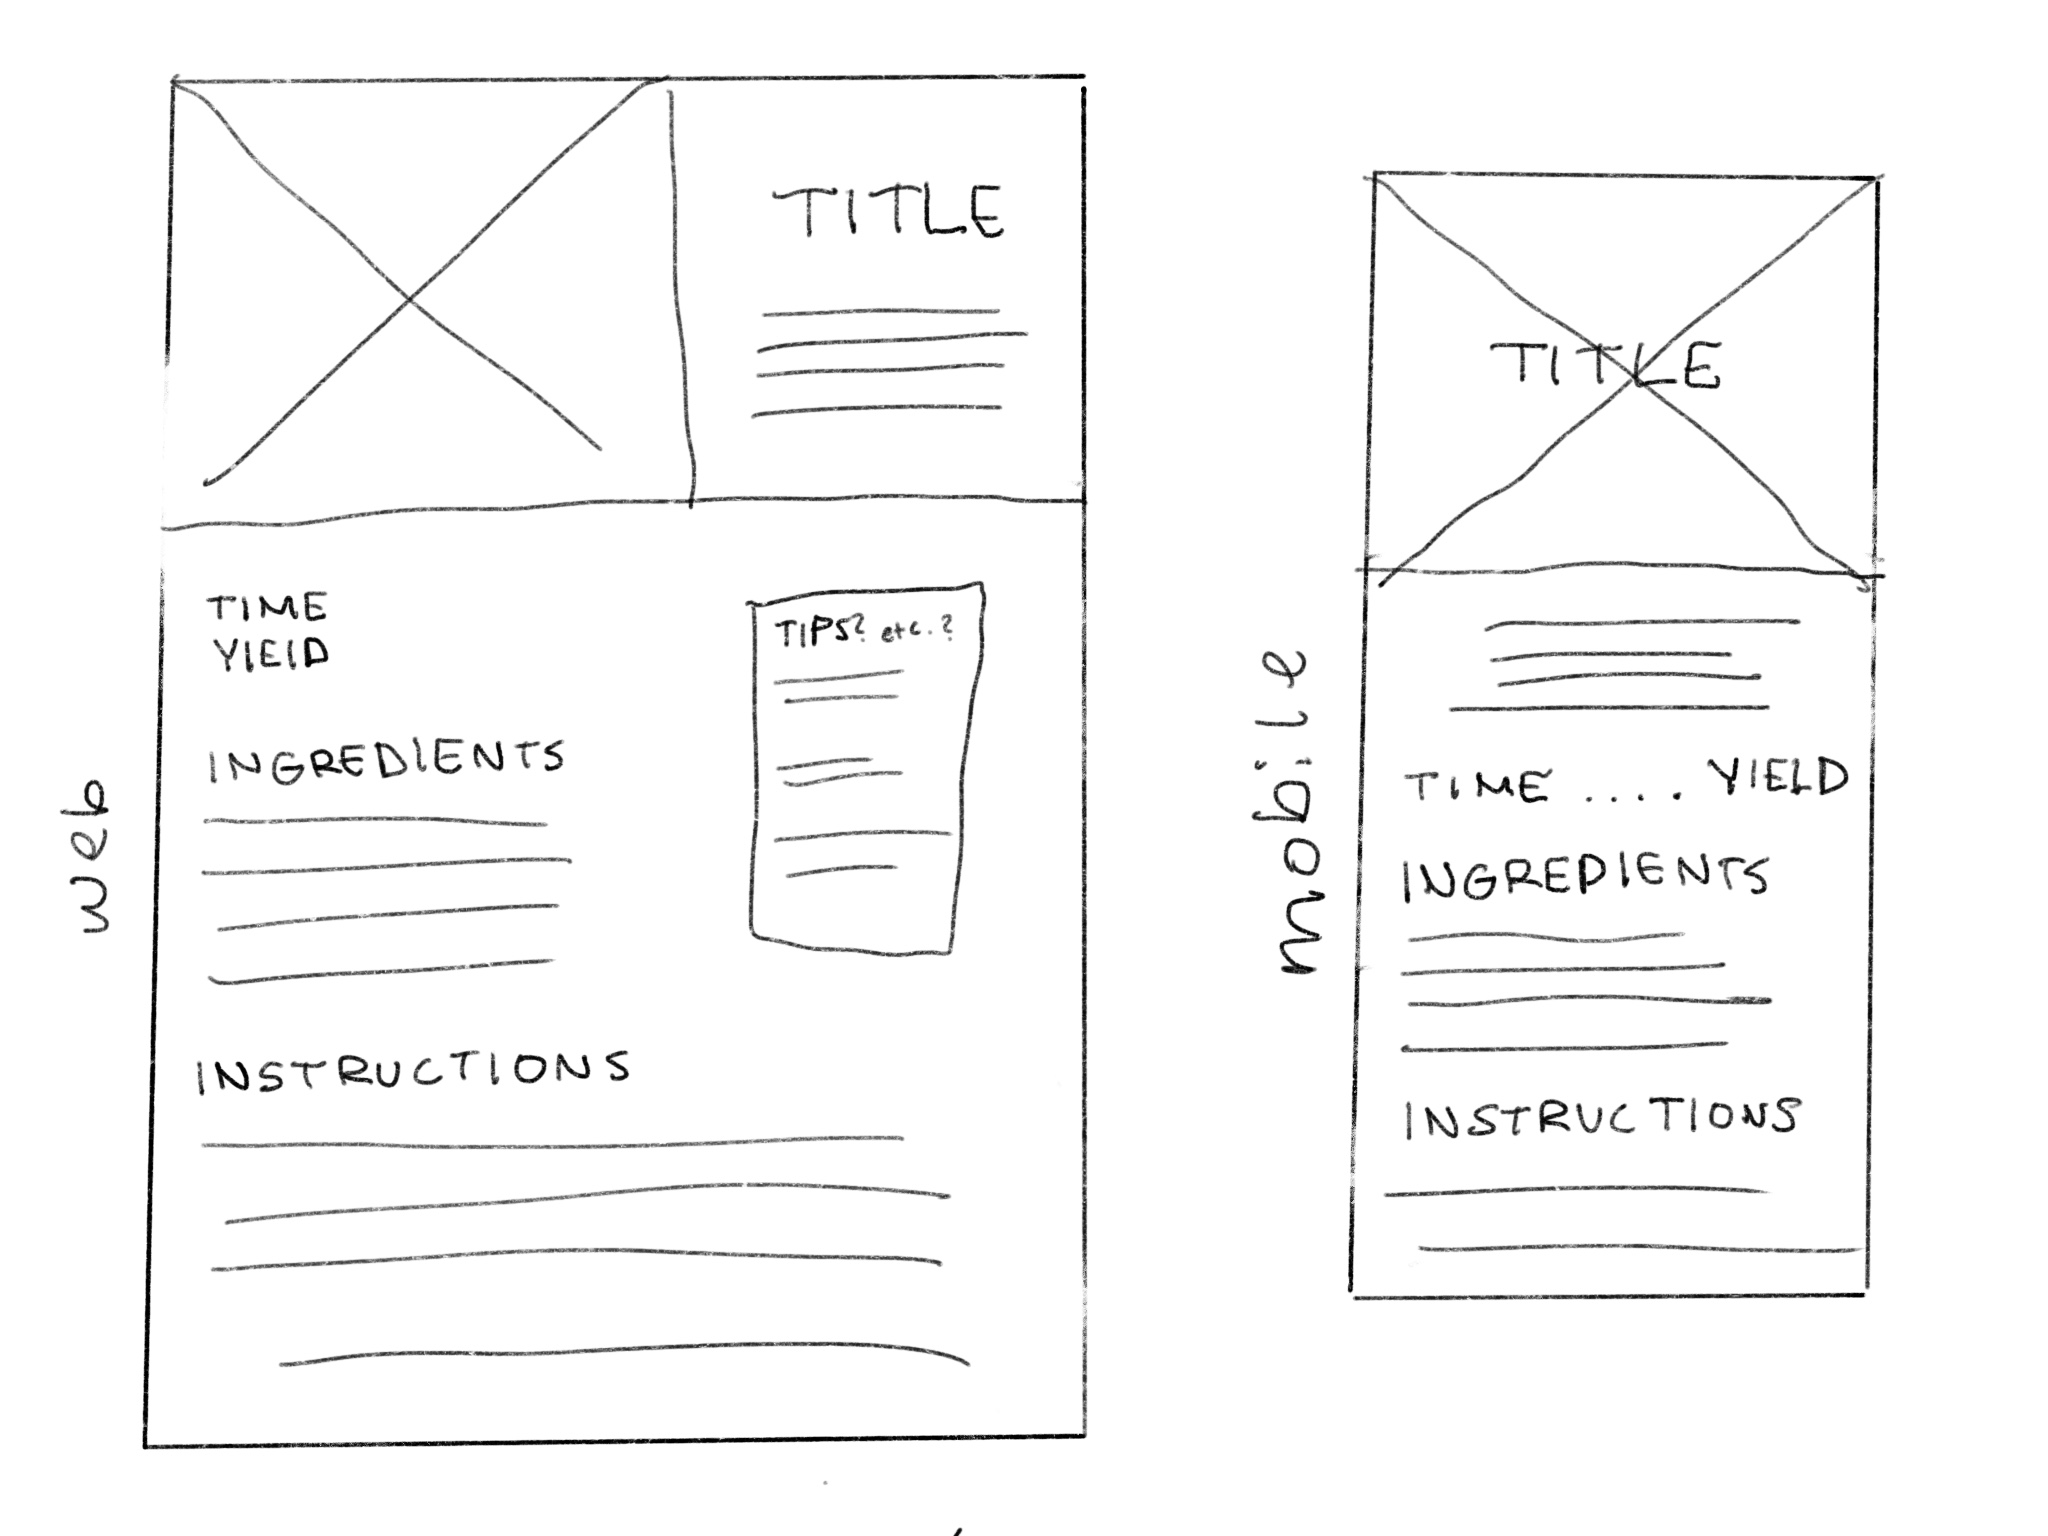 web
TITLE
TIME
YIELD
TIPS? etc.?
INGREDIENTS
INSTRUCTIONS
mobile
TITLE
TIME .... YIELD
INGREDIENTS
INSTRUCTIONS